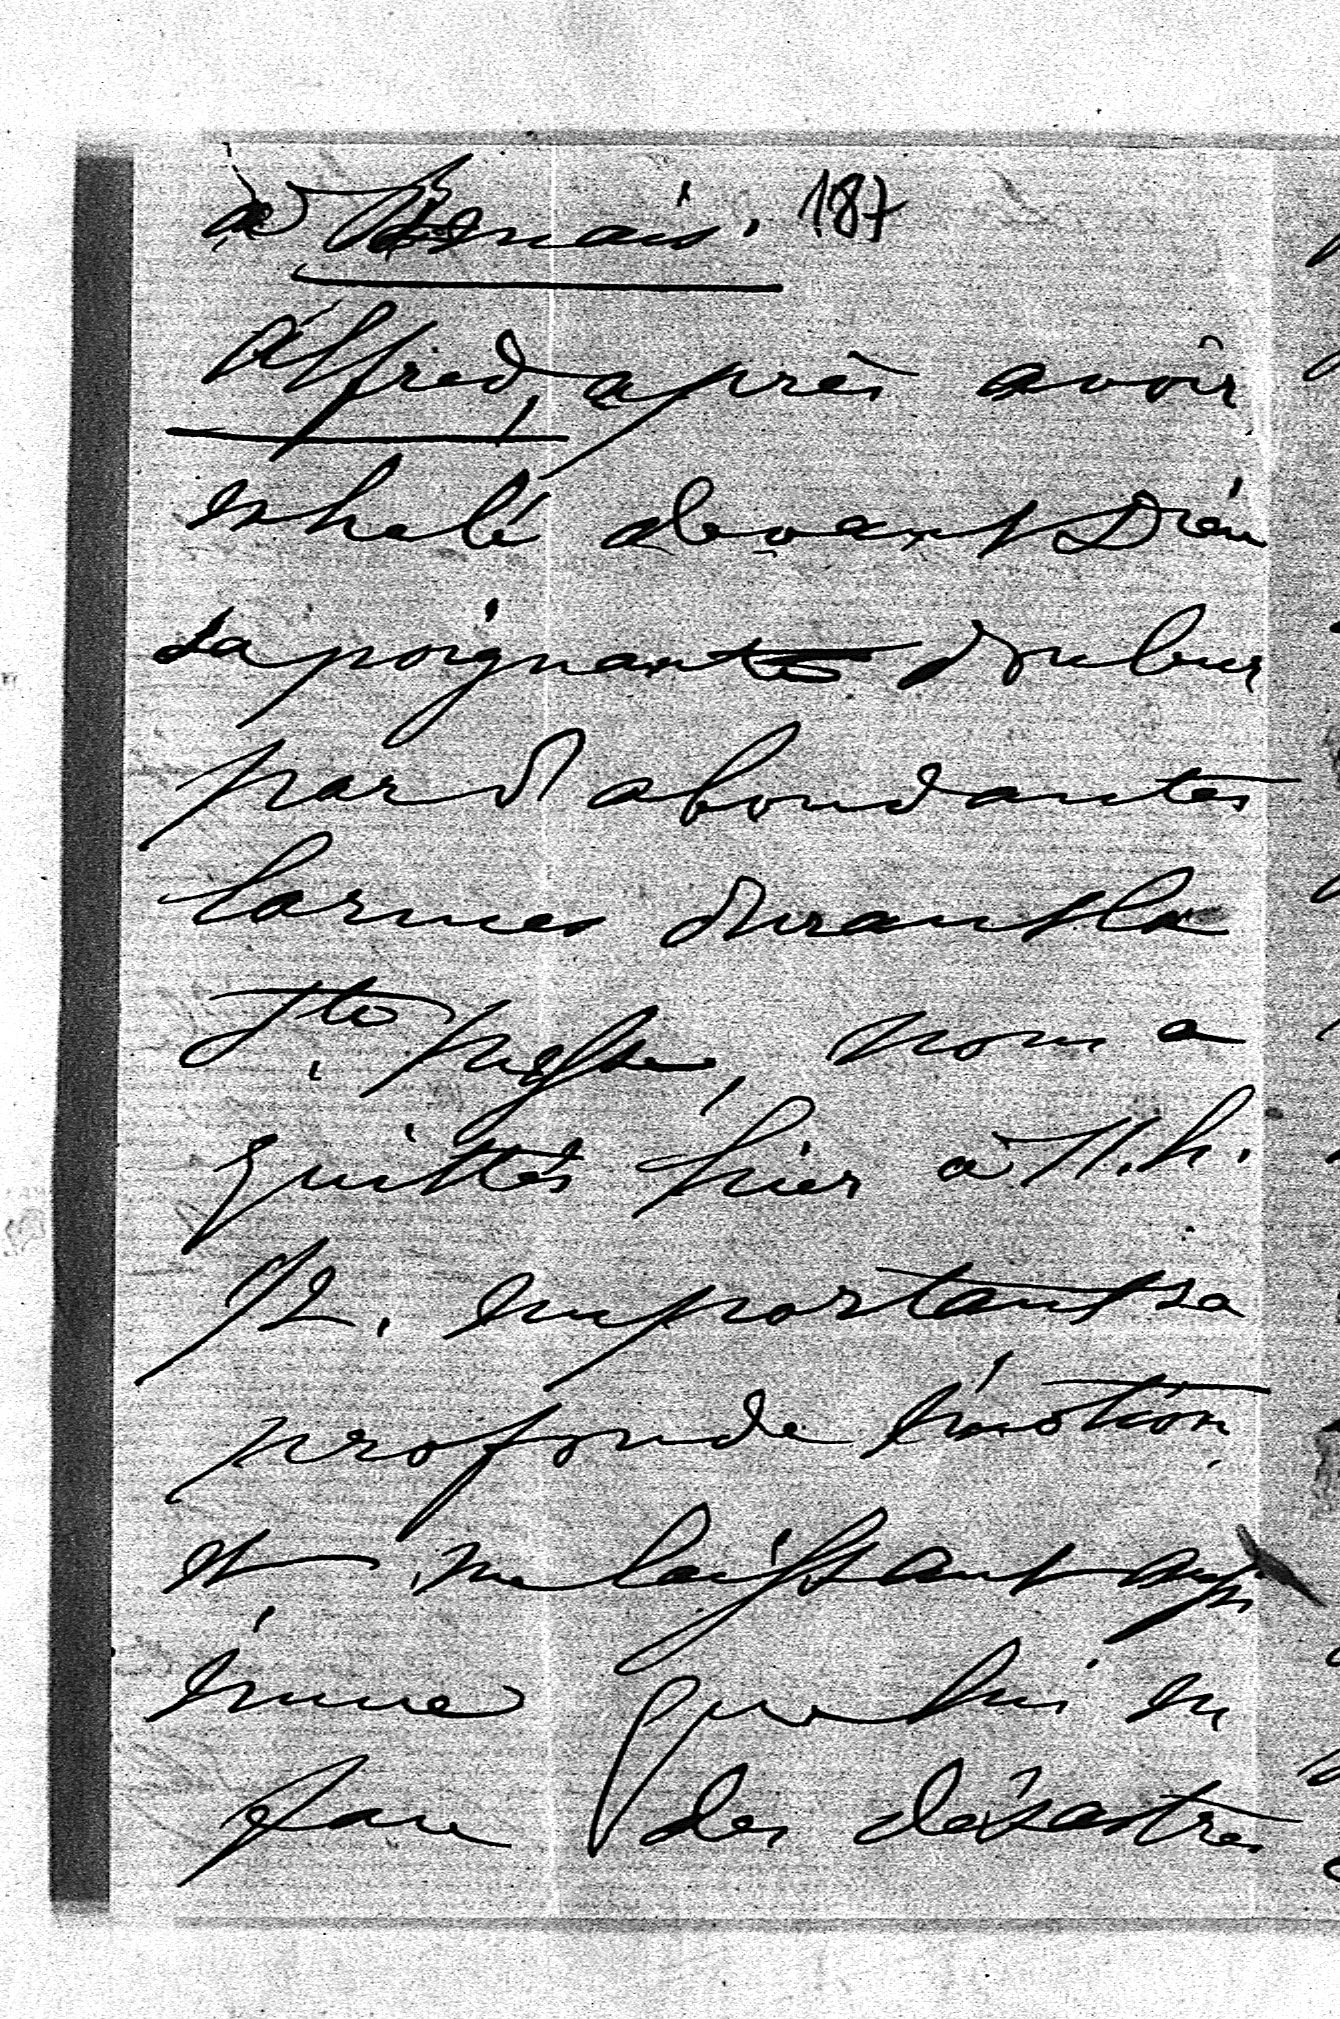 à mais. 187
Alfred, après avoir
exhalé devant Dieu
sa poignante douleur
par d'abondantes
larmes durant la
Ste messe, nous a
quittés hier à 11.h.
1/2. emportant sa
profonde émotion
et me laissant aussi
émue que lui en
face des désastres